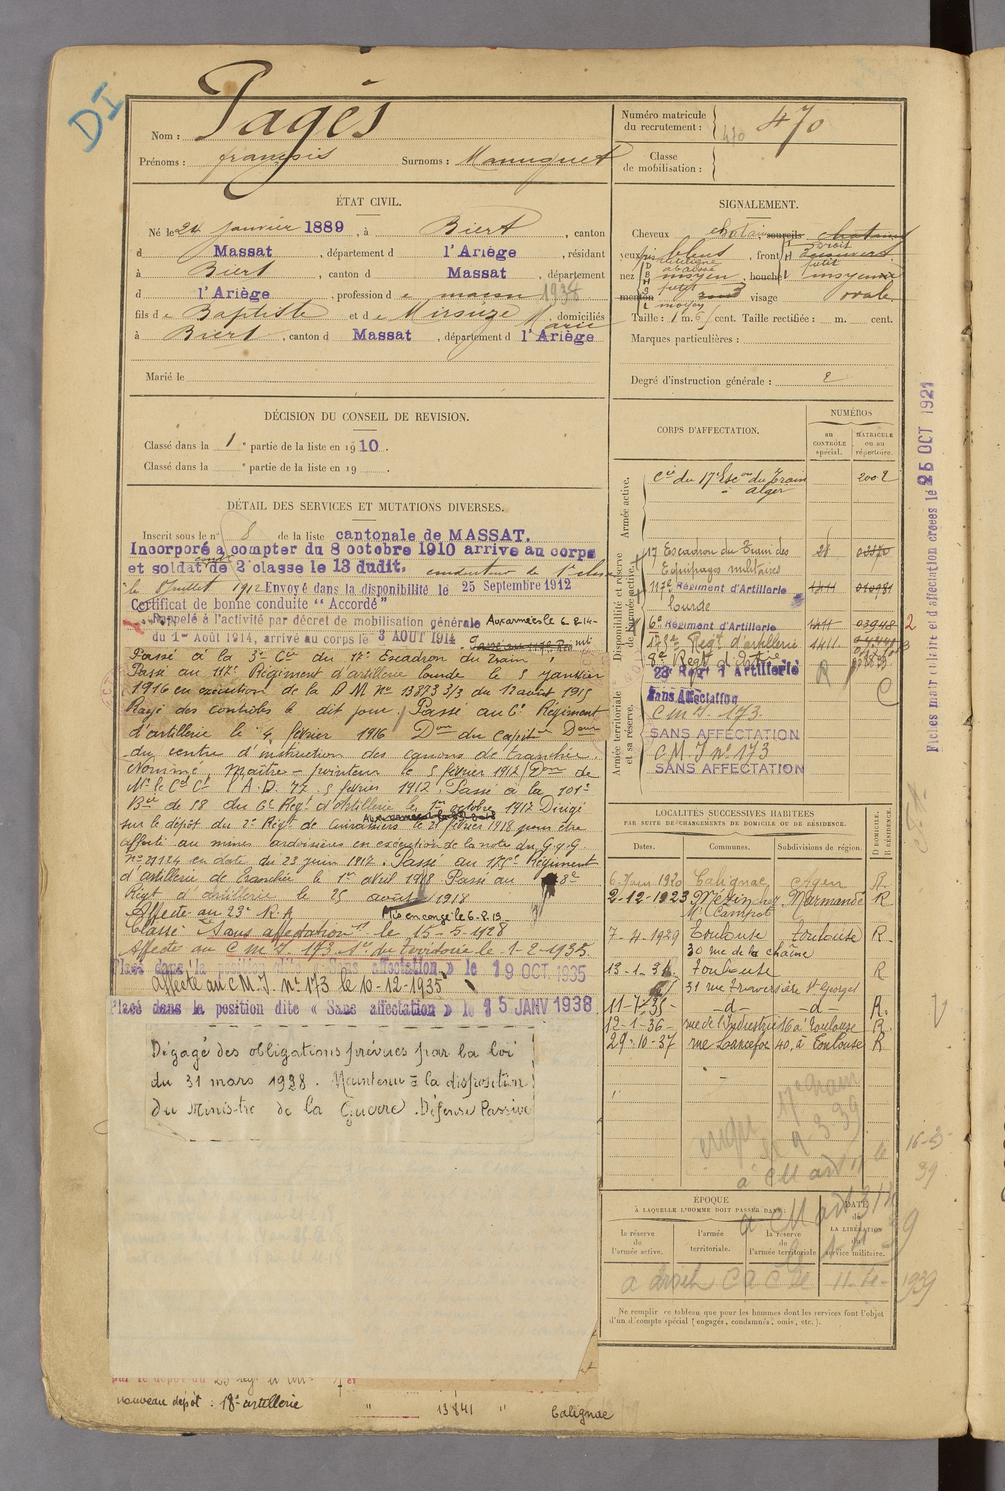 DI
Nom : Pagès
Prénoms : françois Surnoms :
Numéro matricule du recrutement : 470
470
Classe de mobilisation :
ÉTAT CIVIL.
Né le 24 janvier 1889, à Biert, canton
d Massat, département d l'Ariège, résidant
à Biert, canton d Massat, département
d l'Ariège, profession d e maçon 1938
fils de Baptiste et de Mirouze Marie, domiciliés
à Biert, canton d Massat, département d l'Ariège
Marié le
SIGNALEMENT.
Cheveux chatain sourcils chatains
yeux bleus, front droit
nez moyen, bouche moyenne
menton rond visage ovale
Taille : 1 m. 6 cent. Taille rectifiée : m. cent.
Marques particulières :
Degré d'instruction générale : 2
DÉCISION DU CONSEIL DE REVISION.
Classé dans la 1e partie de la liste en 1910.
Classé dans la e partie de la liste en 19 .
DÉTAIL DES SERVICES ET MUTATIONS DIVERSES.
Inscrit sous le n° 8 de la liste cantonale de MASSAT.
Incorporé à compter du 8 octobre 1910 arrivé au corps
et soldat de 2e classe le 13 dudit. conducteur de 1e classe
le 8 juillet 1912 Envoyé dans la disponibilité le 25 Septembre 1912
Certificat de bonne conduite "Accordé"
Rappelé à l'activité par décret de mobilisation générale Aux armées le 6-8-14-
du 1er Août 1914, arrivé au corps le 3 AOUT 1914
Passé à la 3e Cie du 17e Escadron du Train
Passé au 117e Régiment d'artillerie lourde le 5 janvier
1916 en exécution de la D M No 13873 3/3 du 12 août 1915
Rayé des contrôles le dit jour. Passé au 6e Régiment
d'artillerie le 4 février 1916
du centre d'instruction des canons de tranchée.
Nommé, Maître-pointeur le 5 février 1917
A.D. 77. 5 février 1917. Passé à la 101e
Bie de 58 du 6e Régt d'Artillerie le 1er octobre 1917 Dirigé
sur le dépôt du 2e Régt de Cuirassiers le 21 février 1918 pour être
affecté au mines ardoisières en exécution de la note du G.Q.G
No 29124 en date du 23 juin 1917. Passé au 175e Régiment
d'artillerie de tranchée le 1er avril 1918 Passé au 8e
Régt d'artillerie le 25 août 1918
Affecté au 23e R.A Mis en congé le 6-8-19-
Classé: "Sans affectation" le 15-5-1928
Affecté au C M I. 173 le 1-2-1935.
Placé dans la position dite « Sans affectation » le 19 OCT 1935
affecté au C M. I. n° 173 le 10-12-1935
Placé dans la position dite « Sans affectation » le 15 JANV 1938
Dégagé des obligations prévues par la loi
du 31 mars 1928. Maintenu à la disposition
du Ministre de la Guerre. Défense Passive
nouveau dépôt : 18e artillerie " 13841 " Calignac
CORPS D'AFFECTATION.
NUMÉROS
au CONTRÔLE spécial.
MATRICULE ou au répertoire.
Armée active.
Cie du 17e Escon du Train 2002
à Alger
Disponibilité et réserve de l'armée active.
17 Escadron du Train des
Equipages militaires
117e Régiment d'Artillerie 1411
lourde
6e Régiment d'Artillerie 1411 03948
Régt d'artillerie 1411
8e Régt d'artillerie
Armée territoriale et sa réserve.
23e Régt d'Artillerie
Sans Affectation
C M I. 173.
SANS AFFECTATION
C M. I n° 173
SANS AFFECTATION
Fiches matriculaire et d'affectation créées le 25 OCT 1921
LOCALITÉS SUCCESSIVES HABITÉES
PAR SUITE DE CHANGEMENTS DE DOMICILE OU DE RÉSIDENCE.
Dates. Communes. Subdivisions de région. D DOMICILE. R RÉSIDENCE.
6 Juin 1920 Calignac Agen R
2-12-1923 Mézin chez Marmande R
Mr Campot
7-4-1929 Toulouse Toulouse R
30 rue de la chaîne
Toulouse R
31 rue Traversière St Georges
-d- -d- R.
12-1-36- rue de l'Industrie 16 à Toulouse R.
29-10-37 rue Lancefoc 40, à Toulouse R
16-3-39
ÉPOQUE
À LAQUELLE L'HOMME DOIT PASSER DANS :
la réserve de l'armée active.
l'armée territoriale.
la réserve de l'armée territoriale
DATE de LA LIBÉRATION du service militaire.
1939
Ne remplir ce tableau que pour les hommes dont les services font l'objet
d'un décompte spécial (engagés, condamnés, omis, etc.).